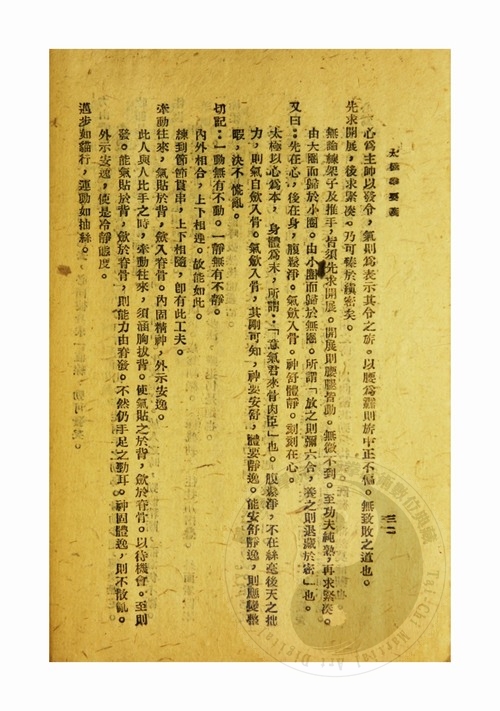 太極拳要義
三二
心爲主帥以發令，氣則爲表示其令之旂。以腰爲纛則旂中正不偏。無致敗之道也。
先求開展，後求緊凑。乃可臻於縝密矣。
無論練架子及推手，皆須先求開展。開展則腰腿皆動。無微不到。至功夫純熟，再求緊凑。
由大圈而歸於小圈。由小圈而歸於無圈。所謂「放之則彌六合，卷之則退藏於密」也。
又曰：先在心，後在身，腹鬆淨。氣歛入骨。神舒體靜。刻刻在心。
太極以心爲本，身體爲末，所謂：「意氣君來骨肉臣」也。腹鬆淨，不在絲毫後天之拙
力，則氣自歛入骨。氣歛入骨，其剛可知，神要安舒，體要靜逸。能安舒靜逸，則應變整
暇，決不慌亂。
切記：一動無有不動。一靜無有不靜。
內外相合，上下相連。故能如此。
練到節節貫串，上下相隨，卽有此工夫。
牽動往來，氣貼於背，歛入脊骨。內固精神，外示安逸。
此人與人比手之時，牽動往來，須涵胸拔背。使氣貼之於背，歛於脊骨。以待機會。至則
發。能氣貼於背，歛於脊骨，則能力由脊發。不然仍手足之勁耳。神固體逸，則不散亂。
外示安逸，便是冷靜態度。
邁步如貓行，運動如抽絲。